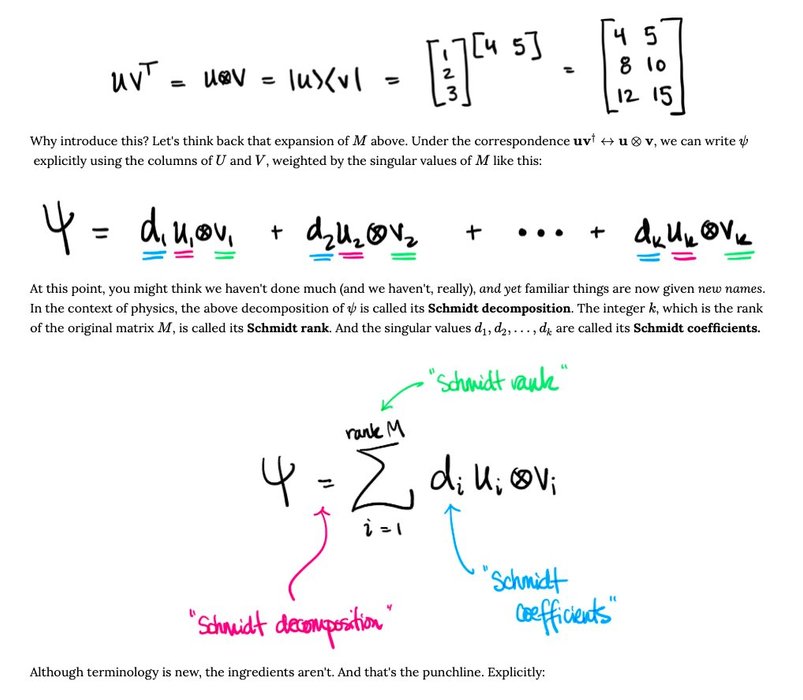 uvᵀ = u⊗v = |u⟩⟨v| = [1 2 3] [4 5] = [4 5 8 10 12 15]
Why introduce this? Let's think back that expansion of M above. Under the correspondence uv† ↔ u ⊗ v, we can write ψ
explicitly using the columns of U and V, weighted by the singular values of M like this:
ψ = d₁u₁⊗v₁ + d₂u₂⊗v₂ + ••• + dₖuₖ⊗vₖ
At this point, you might think we haven't done much (and we haven't, really), and yet familiar things are now given new names.
In the context of physics, the above decomposition of ψ is called its Schmidt decomposition. The integer k, which is the rank
of the original matrix M, is called its Schmidt rank. And the singular values d₁, d₂, . . . , dₖ are called its Schmidt coefficients.
"Schmidt rank"
rank M
ψ = Σ dᵢ uᵢ⊗vᵢ
i = 1
"Schmidt
coefficients"
"Schmidt decomposition"
Although terminology is new, the ingredients aren't. And that's the punchline. Explicitly: